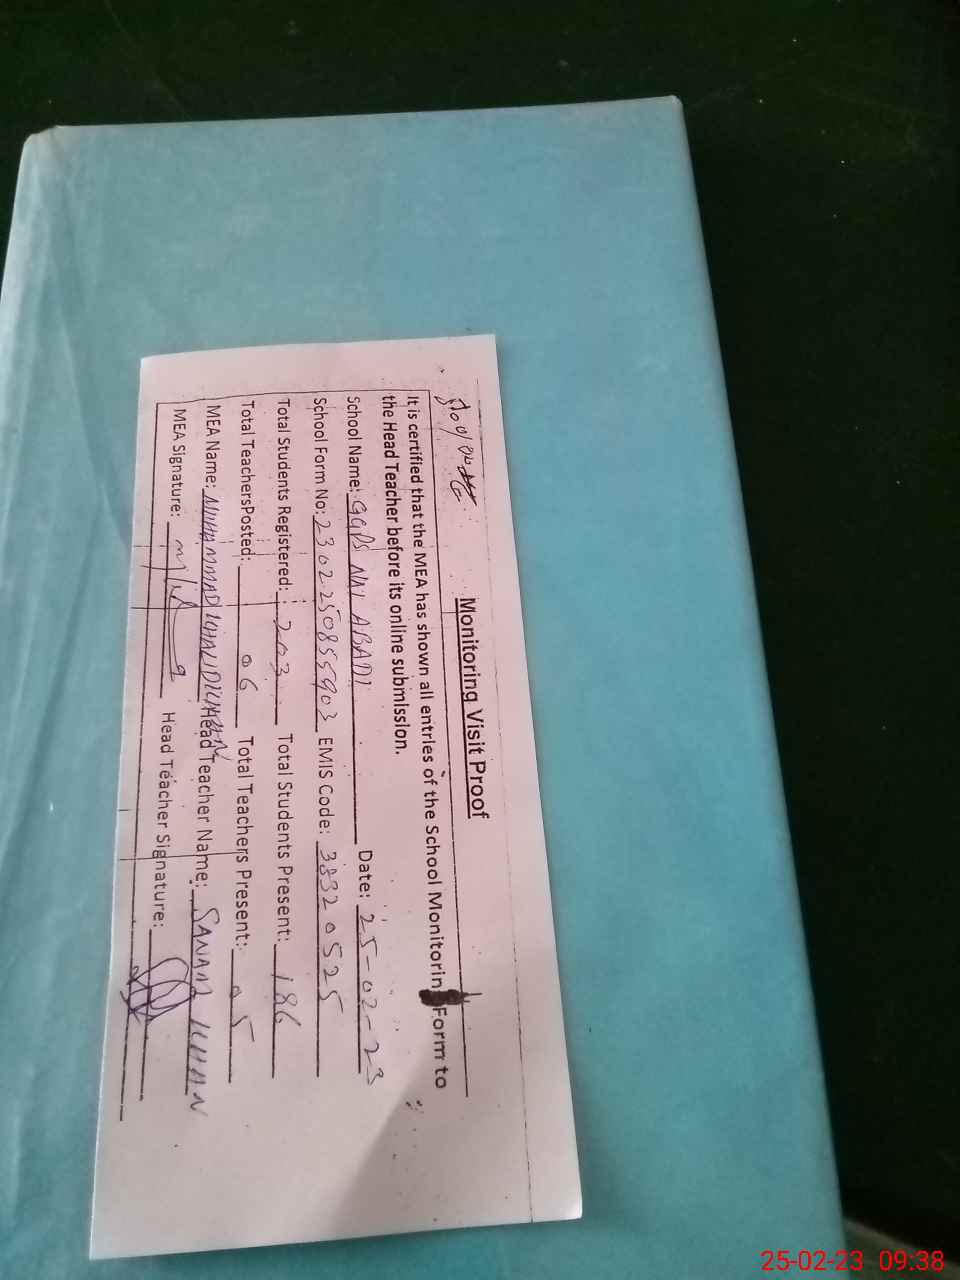 Monitoring Visit Proof
It is certified that the MEA has shown all entries of the School Monitoring Form to
the Head Teacher before its online submission.
School Name: GGPS NAI ABADI Date: 25-02-23
School Form No: 2302250855903 EMIS Code: 38320525
Total Students Registered: 203 Total Students Present: 186
Total TeachersPosted: 06 Total Teachers Present: 05
MEA Name: MUHAMMAD KHALID KHAN Head Teacher Name: SANAM KHAN
MEA Signature: Head Teacher Signature:
25-02-23 09:38